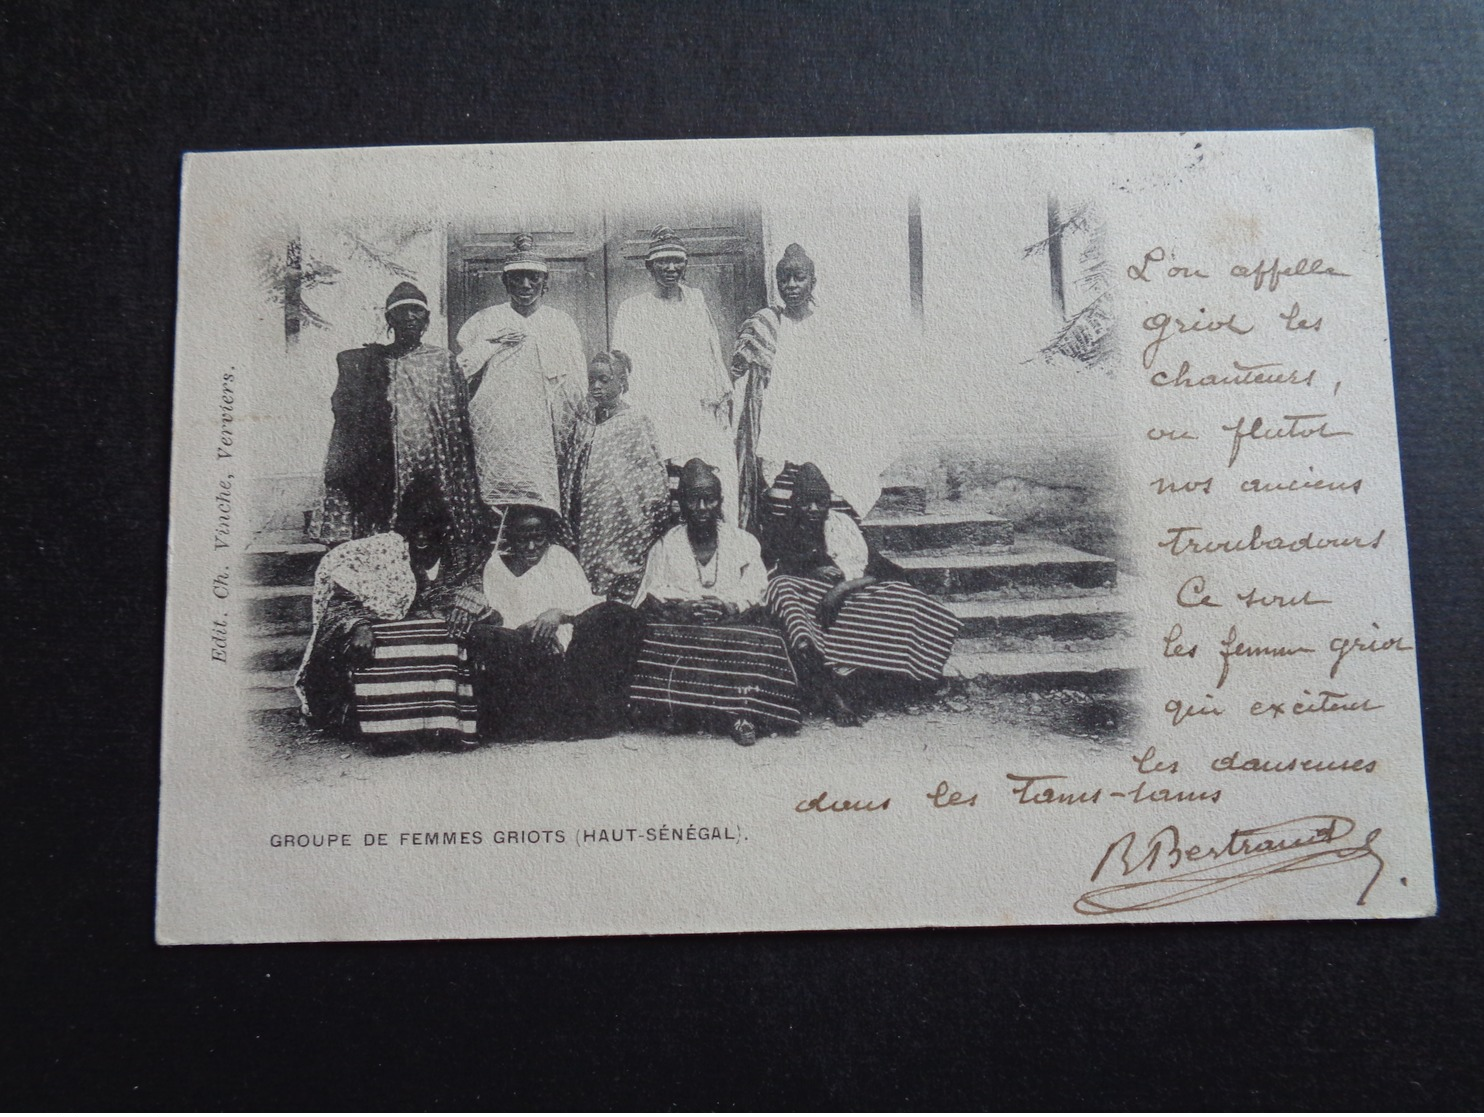 Edit. Ch. Vinche, Verviers.
L'on appelle
griot les
chanteurs,
ou plutot
nos anciens
troubadours
Ce sont
les femmes griot
qui excitent
les danseuses
dans les tams-tams
B Bertrand
GROUPE DE FEMMES GRIOTS (HAUT-SÉNÉGAL).